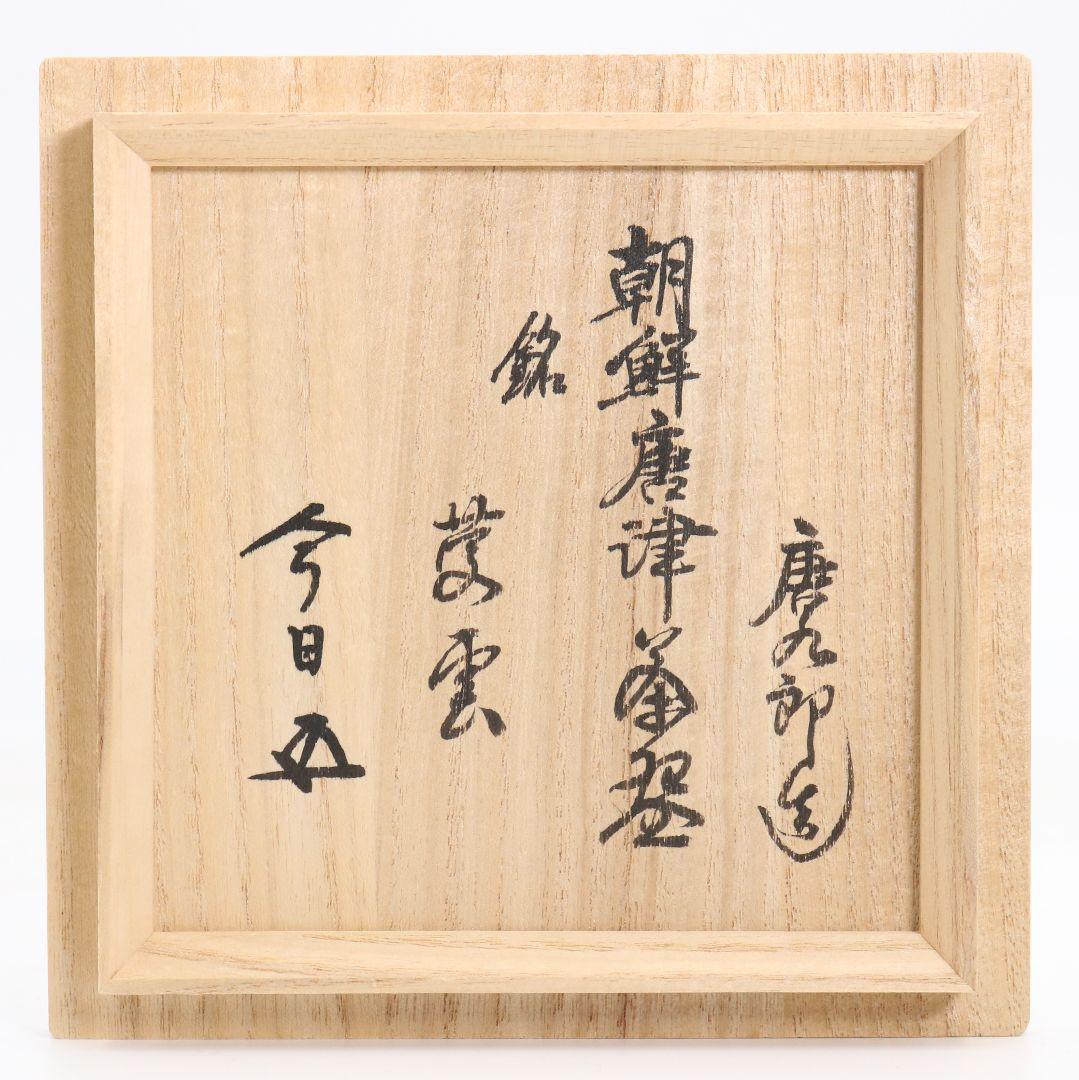 唐九郎造
朝鮮唐津茶盌
銘
雲
今日